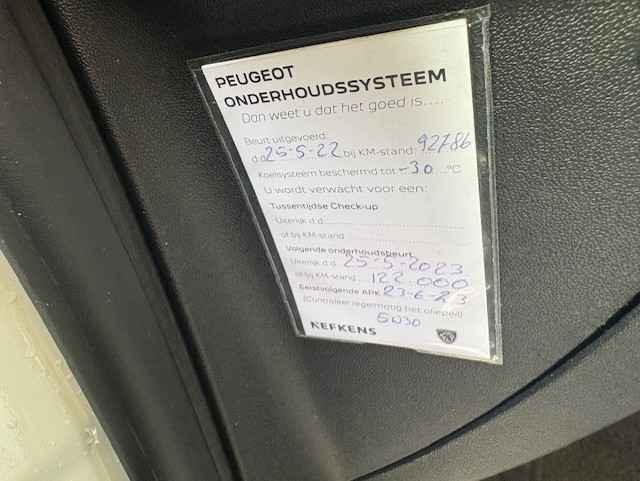 PEUGEOT
ONDERHOUDSSYSTEEM
Dan weet u dat het goed is....
Beurt uitgevoerd:
d.d. 25-5-22 bij KM-stand: 92786
Koelsysteem beschermd tot -30 °C
U wordt verwacht voor een:
Tussentijdse Check-up
Uiterlijk d.d.
of bij KM-stand
Volgende onderhoudsbeurt
Uiterlijk d.d. 25-5-2023
of bij KM-stand 122.000
Eerstvolgende APK 23-6-23
(Controleer regelmatig het oliepeil)
5W30
NEFKENS